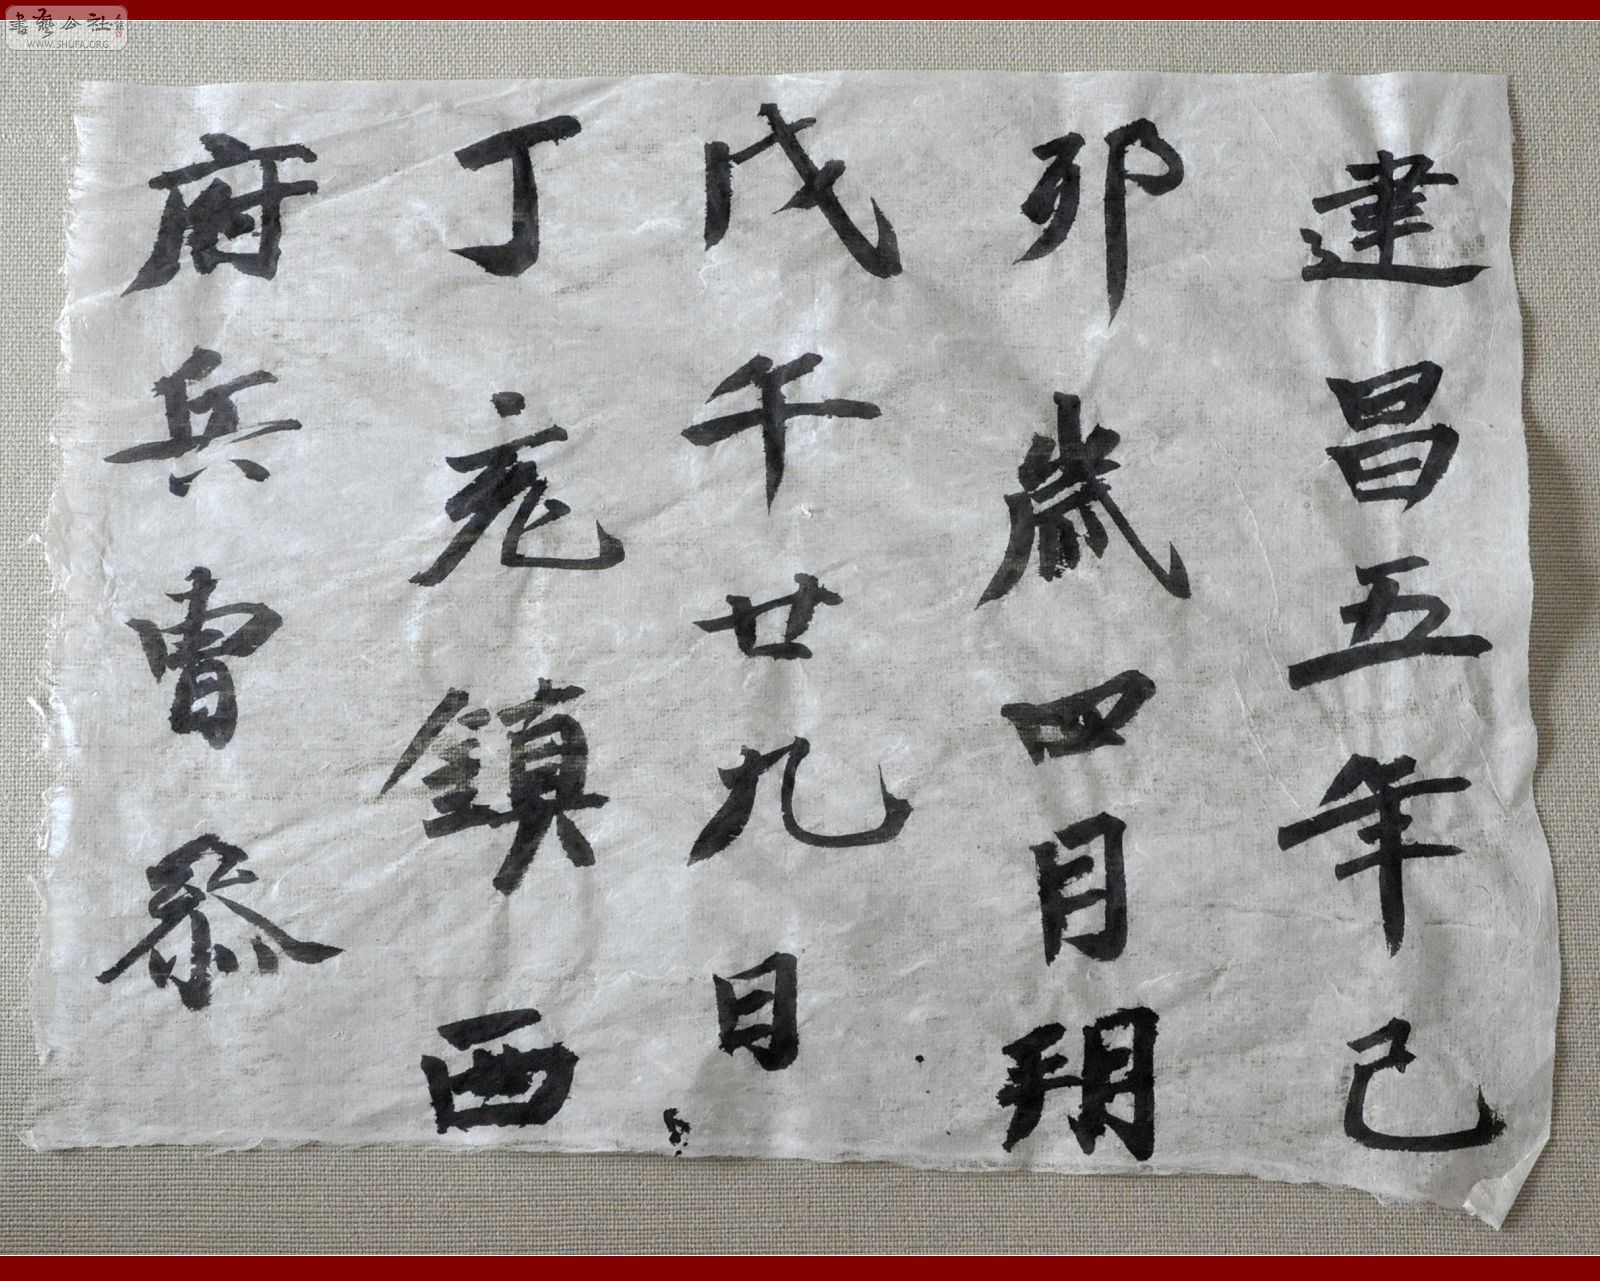 建昌五年己
卯歲四月朔
戊午廿九日
丁亥鎮西
府兵曹泰
書藝公社
WWW.SHUFA.ORG